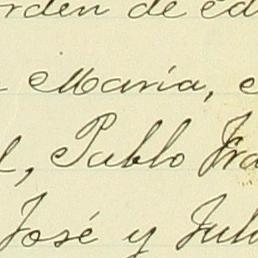 orden de ed
María,
Pablo Fra
José y Juli